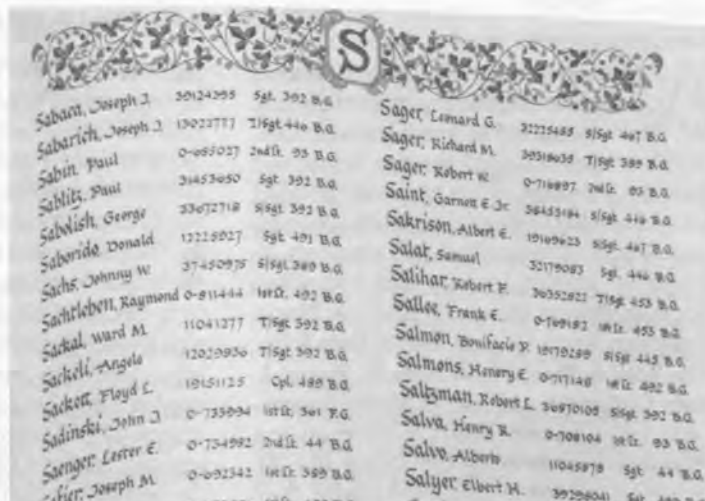 S
Sabara, Joseph J. 39124395 Sgt. 392 B.G.
Sabarich, Joseph J. 13022777 T/Sgt. 446 B.G.
Sabin, Paul 0-685027 2nd Lt. 93 B.G.
Sablitz, Paul 31453050 Sgt. 392 B.G.
Sabolish, George 33672718 S/Sgt. 392 B.G.
Saborido, Donald 12225927 Sgt. 491 B.G.
Sachs, Johnny W. 37450975 S/Sgt. 389 B.G.
Sachtleben, Raymond 0-811444 1st Lt. 492 B.G.
Sackal, Ward M. 11041277 T/Sgt. 392 B.G.
Sackeli, Angelo 12029936 T/Sgt. 392 B.G.
Sackett, Floyd L. 19151125 Cpl. 489 B.G.
Sadinski, John J. 0-733994 1st Lt. 361 F.G.
Saenger, Lester E. 0-734982 2nd Lt. 44 B.G.
Joseph M. 0-692342 1st Lt. 389 B.G.
Sager, Leonard G. 32225485 S/Sgt. 467 B.G.
Sager, Richard M. T/Sgt. 389 B.G.
Sager, Robert W. 0-716897 2nd Lt. 93 B.G.
Saint, Garnett E. Jr. 38453184 S/Sgt. 446 B.G.
Sakrison, Albert E. 19169623 S/Sgt. 467 B.G.
Salat, Samuel 32179083 Sgt. 446 B.G.
Salihar, Robert F. 36352822 T/Sgt. 453 B.G.
Sallee, Frank E. 0-769182 1st Lt. 453 B.G.
Salmon, Bonifacio P. 19179289 S/Sgt. 445 B.G.
Salmons, Henery E. 0-717148 1st Lt. 492 B.G.
Saltzman, Robert L. 36870105 S/Sgt. 392 B.G.
Salva, Henry R. 0-708104 1st Lt. 93 B.G.
Salvo, Alberto 11045878 Sgt. 44 B.G.
Salyer, Elbert H. 39296041 Sgt.